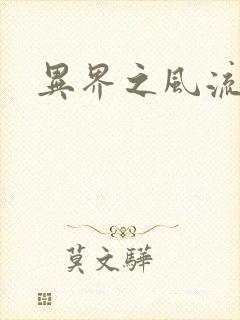 異界之風流
莫文驊